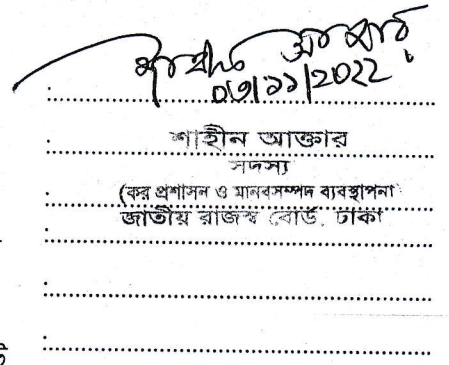 শাহীন আক্তার
০৩/১১/২০২২
শাহীন আক্তার
সদস্য
(কর প্রশাসন ও মানবসম্পদ ব্যবস্থাপনা
জাতীয় রাজস্ব বোর্ড, ঢাকা